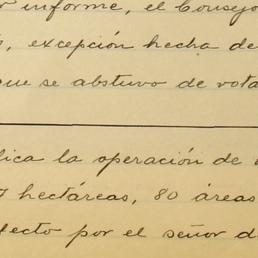 informe, el Consejo
excepción hecha de
que se abstuvo de vota
lica la operación de
7 hectáreas, 80 áreas
fecto por el señor d